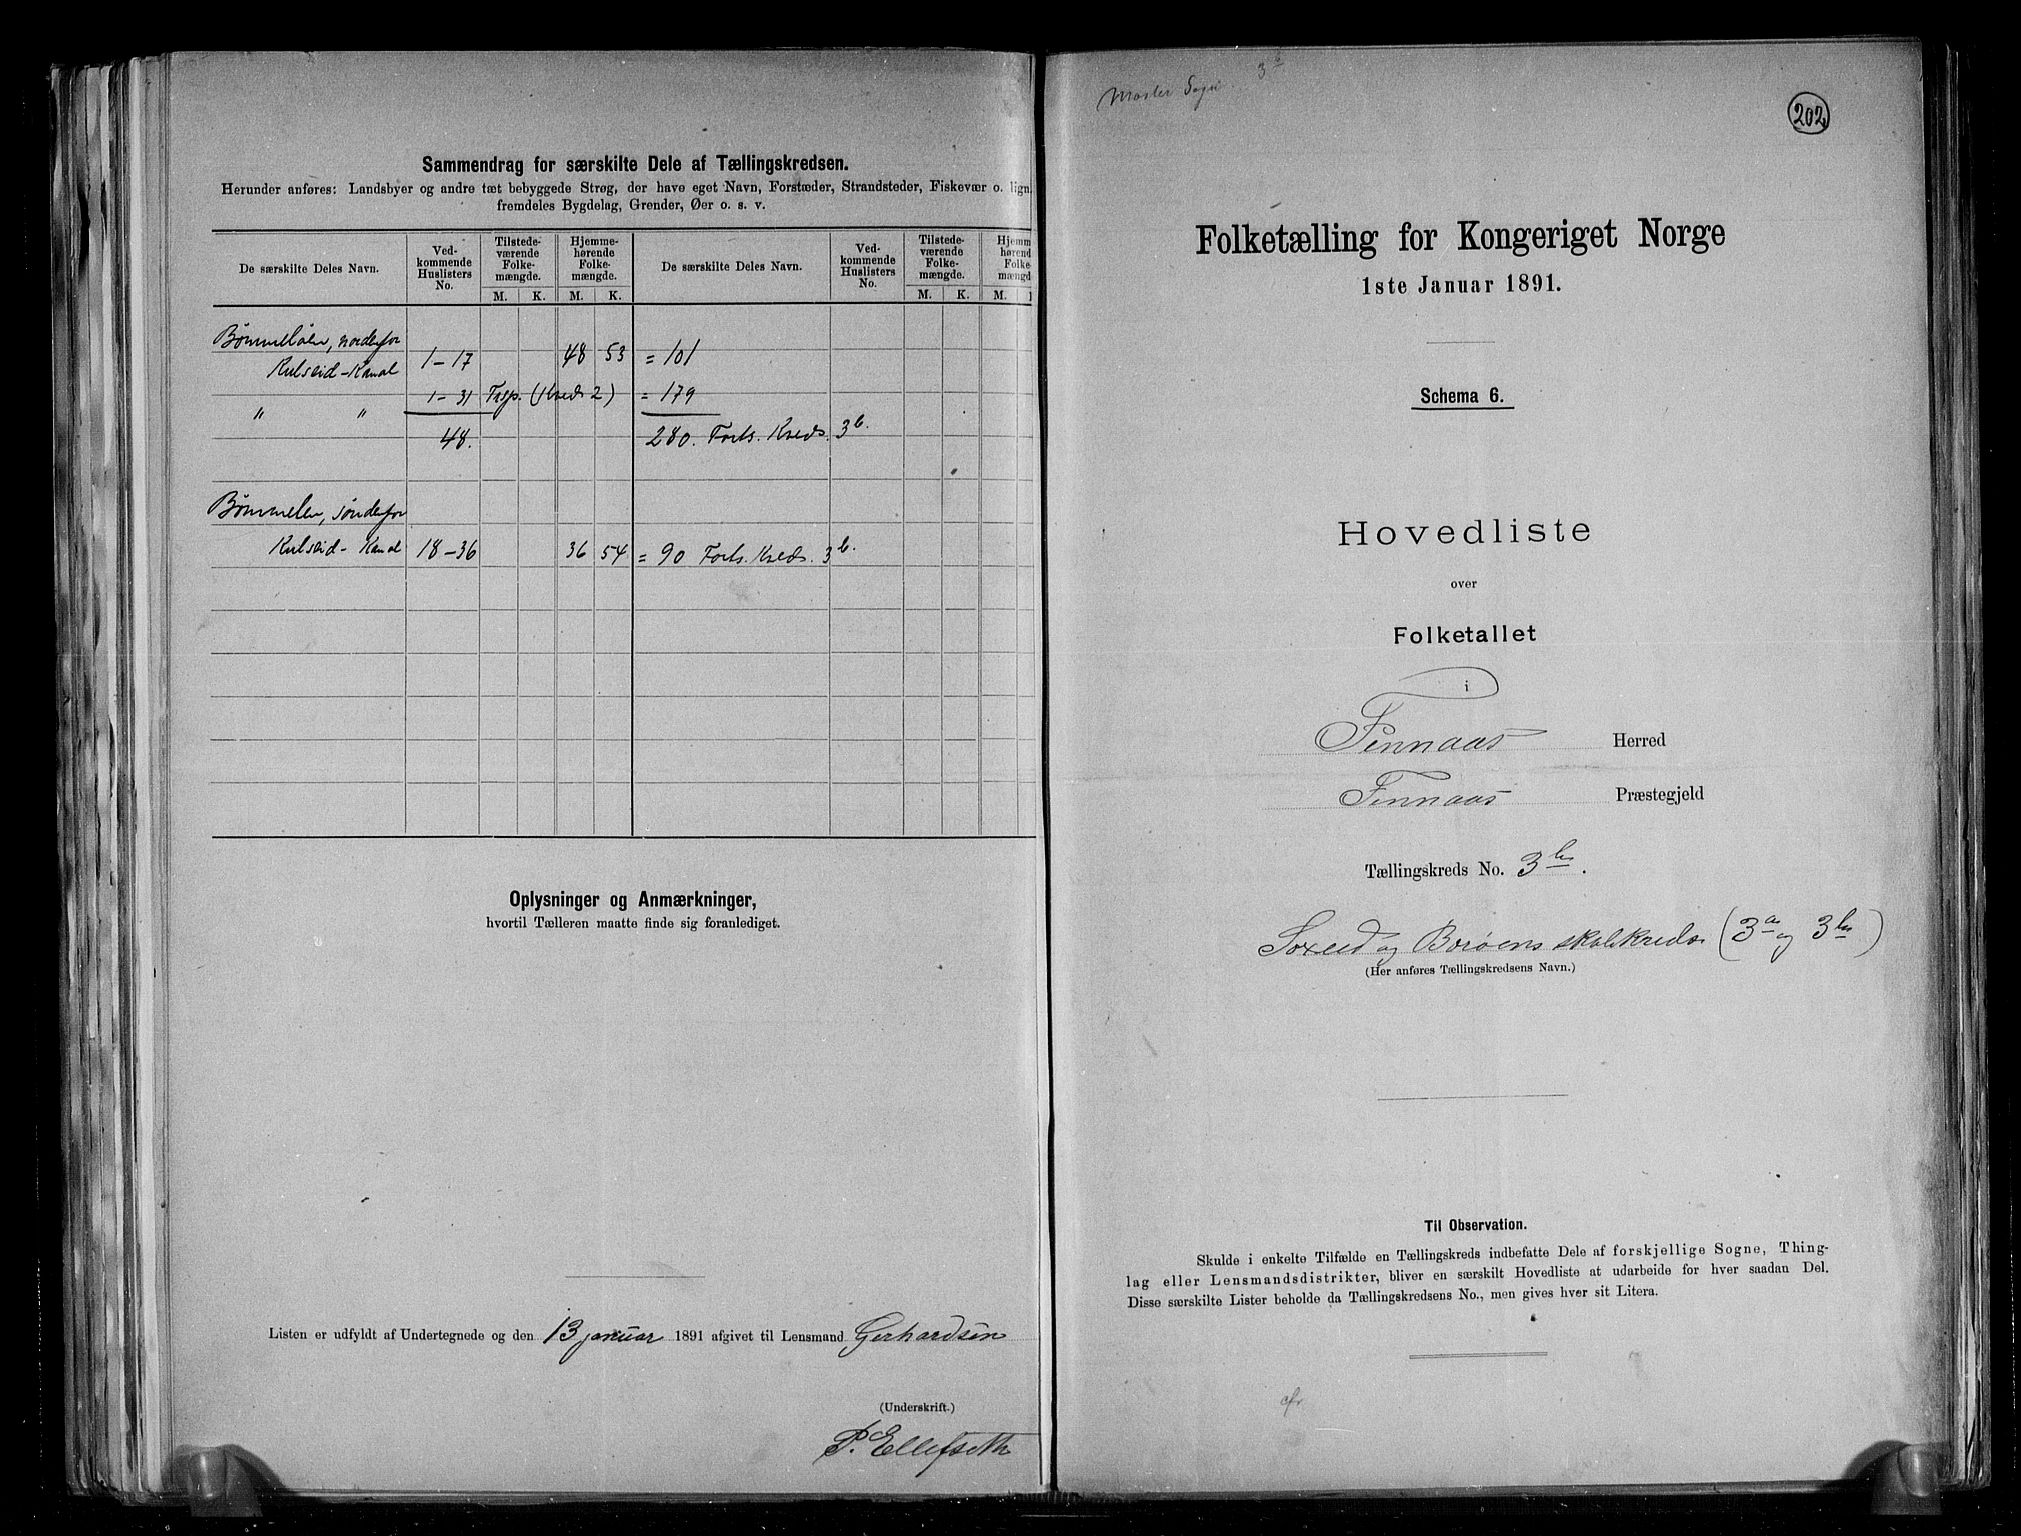 Sammendrag for særskilte Dele af Tællingskredsen.
Herunder anføres: Landsbyer og andre tæt bebyggede Strøg, der have eget Navn, Forstæder, Strandsteder, Fiskevær o. lign.
fremdeles Bygdelag, Grender, Øer o. s. v.
De særskilte Deles Navn.
Ved-
kommende
Huslisters
No.
Tilstede-
værende
Folke-
mængde.
M. K.
Hjemme-
hørende
Folke-
mængde.
M. K.
De særskilte Deles Navn.
Ved-
kommende
Huslisters
No.
Tilstede-
værende
Folke-
mængde.
M. K.
Hjemm
hørend
Folke-
mængd
M.
Bømmeløen, nordenfor
Rulseid-Kanal 1-17 48 53 = 101
" " 1-31 Trsp. (Kreds 2) = 179
48. 280. Forts. Kreds. 3b.
Bømmeløen, søndenfor
Rulseid-Kanal 18-36 36 54 = 90 Forts. Kreds. 3b.
Oplysninger og Anmærkninger,
hvortil Tælleren maatte finde sig foranlediget.
Listen er udfyldt af Undertegnede og den 13 januar 1891 afgivet til Lensmand Gerhardsen
(Underskrift.)
P. Ellefseth
Moster Sogn 3b
202
Folketælling for Kongeriget Norge
1ste Januar 1891.
Schema 6.
Hovedliste
over
Folketallet
i
Finnaas Herred
Finnaas Præstegjeld
Tællingskreds No. 3b.
og Borøens skolekreds (3a og 3b)
(Her anføres Tællingskredsens Navn.)
Til Observation.
Skulde i enkelte Tilfælde en Tællingskreds indbefatte Dele af forskjellige Sogne, Thing-
lag eller Lensmandsdistrikter, bliver en særskilt Hovedliste at udarbeide for hver saadan Del.
Disse særskilte Lister beholde da Tællingskredsens No., men gives hver sit Litera.